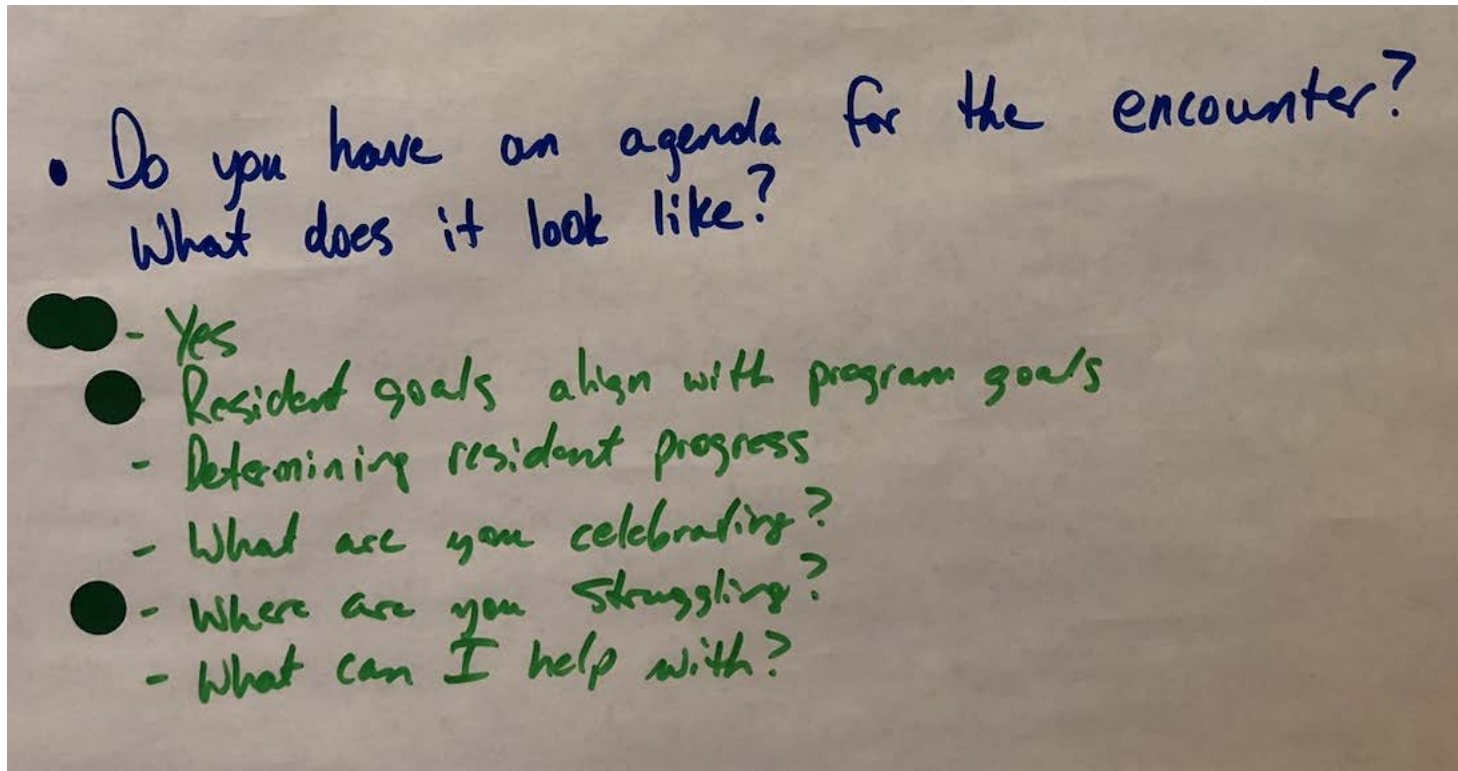 • Do you have an agenda for the encounter?
What does it look like?
- Yes
Resident goals align with program goals
- Determining resident progress
- What are you celebrating?
- Where are you struggling?
- What can I help with?